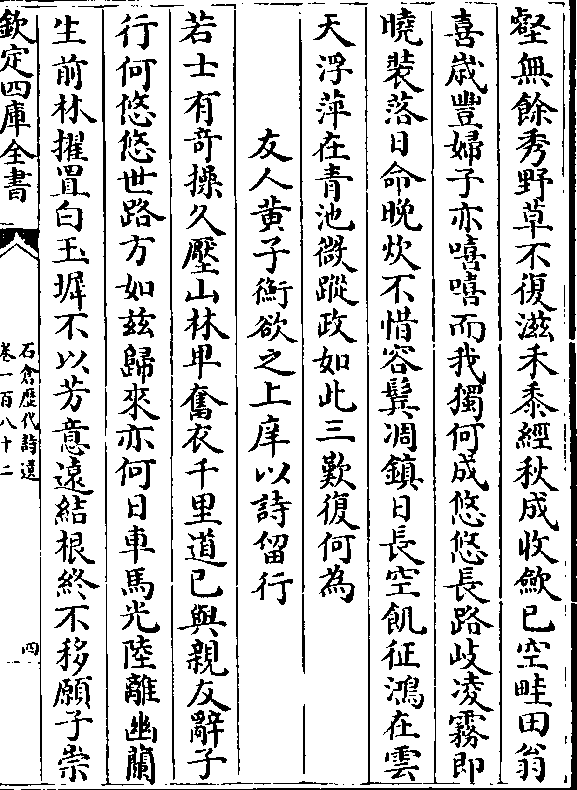 壑無餘秀野草不復滋禾黍經秋成收斂已空畦田翁
喜歲豐婦子亦嘻嘻而我獨何成悠悠長路岐凌霧即
曉裝落日命晚炊不惜容鬂凋鎮日長空飢征鴻在雲
天浮萍在青池微蹤政如此三歎復何為
友人黄子衡欲之上庠以詩留行
若士有奇操久壓山林卑奮衣千里道已與親友辭子
行何悠悠世路方如兹歸來亦何日車馬光陸離幽蘭
生前林擢置白玉墀不以芳意遠結根終不移願子崇
欽定四庫全書
石倉歷代詩選
卷一百八十二
四